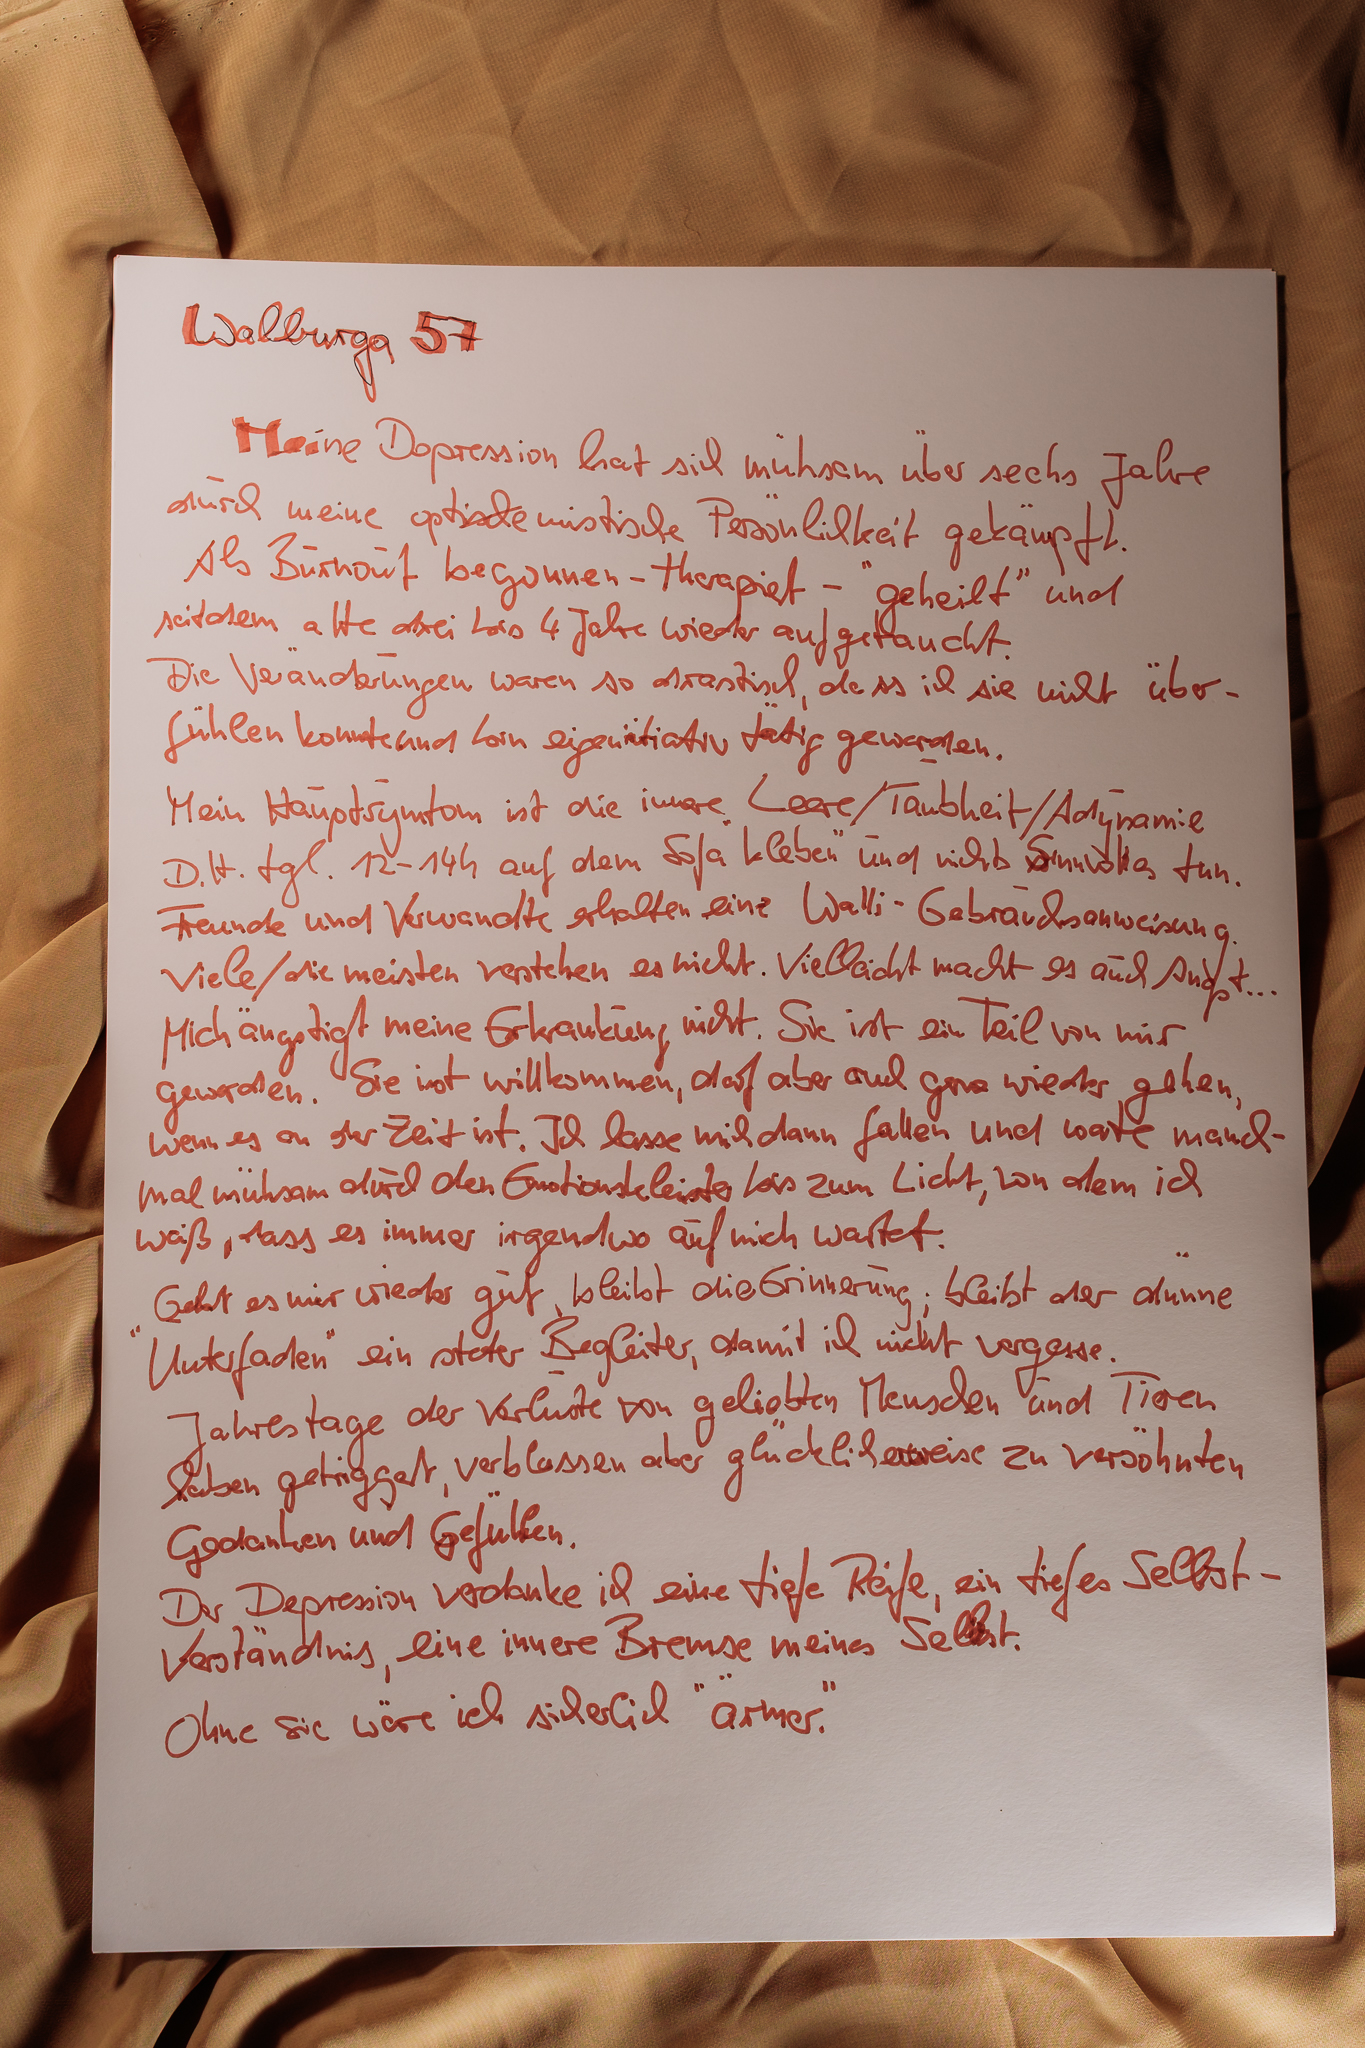 Walburga 57
Meine Depression hat sich mühsam über sechs Jahre
durch meine optimistische Persönlichkeit gekämpft.
Als Burnout begonnen - therapiert - "geheilt" und
seitdem alle drei bis 4 Jahre wieder aufgetaucht.
Die Veränderungen waren so drastisch, dass ich sie nicht über-
fühlen konnte und bin eigeninitiativ tätig geworden.
Mein Hauptsymtom ist die innere Leere/Taubheit/Adynamie
D.H. tgl. 12-14h auf dem Sofa "kleben" und nichts Sinnvolles tun.
Freunde und Verwandte erhalten eine Walli-Gebrauchsanweisung.
Viele/die meisten verstehen es nicht. Vielleicht macht es auch Angst...
Mich ängstigt meine Erkrankung nicht. Sie ist ein Teil von mir
geworden. Sie ist willkommen, darf aber auch gerne wieder gehen,
wenn es an der Zeit ist. Ich lasse mich dann fallen und warte manch-
mal mühsam durch den Emotionskleister bis zum Licht, von dem ich
weiß, dass es immer irgendwo auf mich wartet.
Geht es mir wieder gut, bleibt die Erinnerung; bleibt der dünne
"Unterfaden" ein steter Begleiter, damit ich nicht vergesse.
Jahrestage der Verluste von geliebten Menschen und Tieren
haben getriggert, verblassen aber glücklicherweise zu versöhnten
Gedanken und Gefühlen.
Der Depression verdanke ich eine tiefe Reife, ein tiefes Selbst-
Verständnis, eine innere Bremse meines Selbst.
Ohne sie wäre ich sicherlich "ärmer."